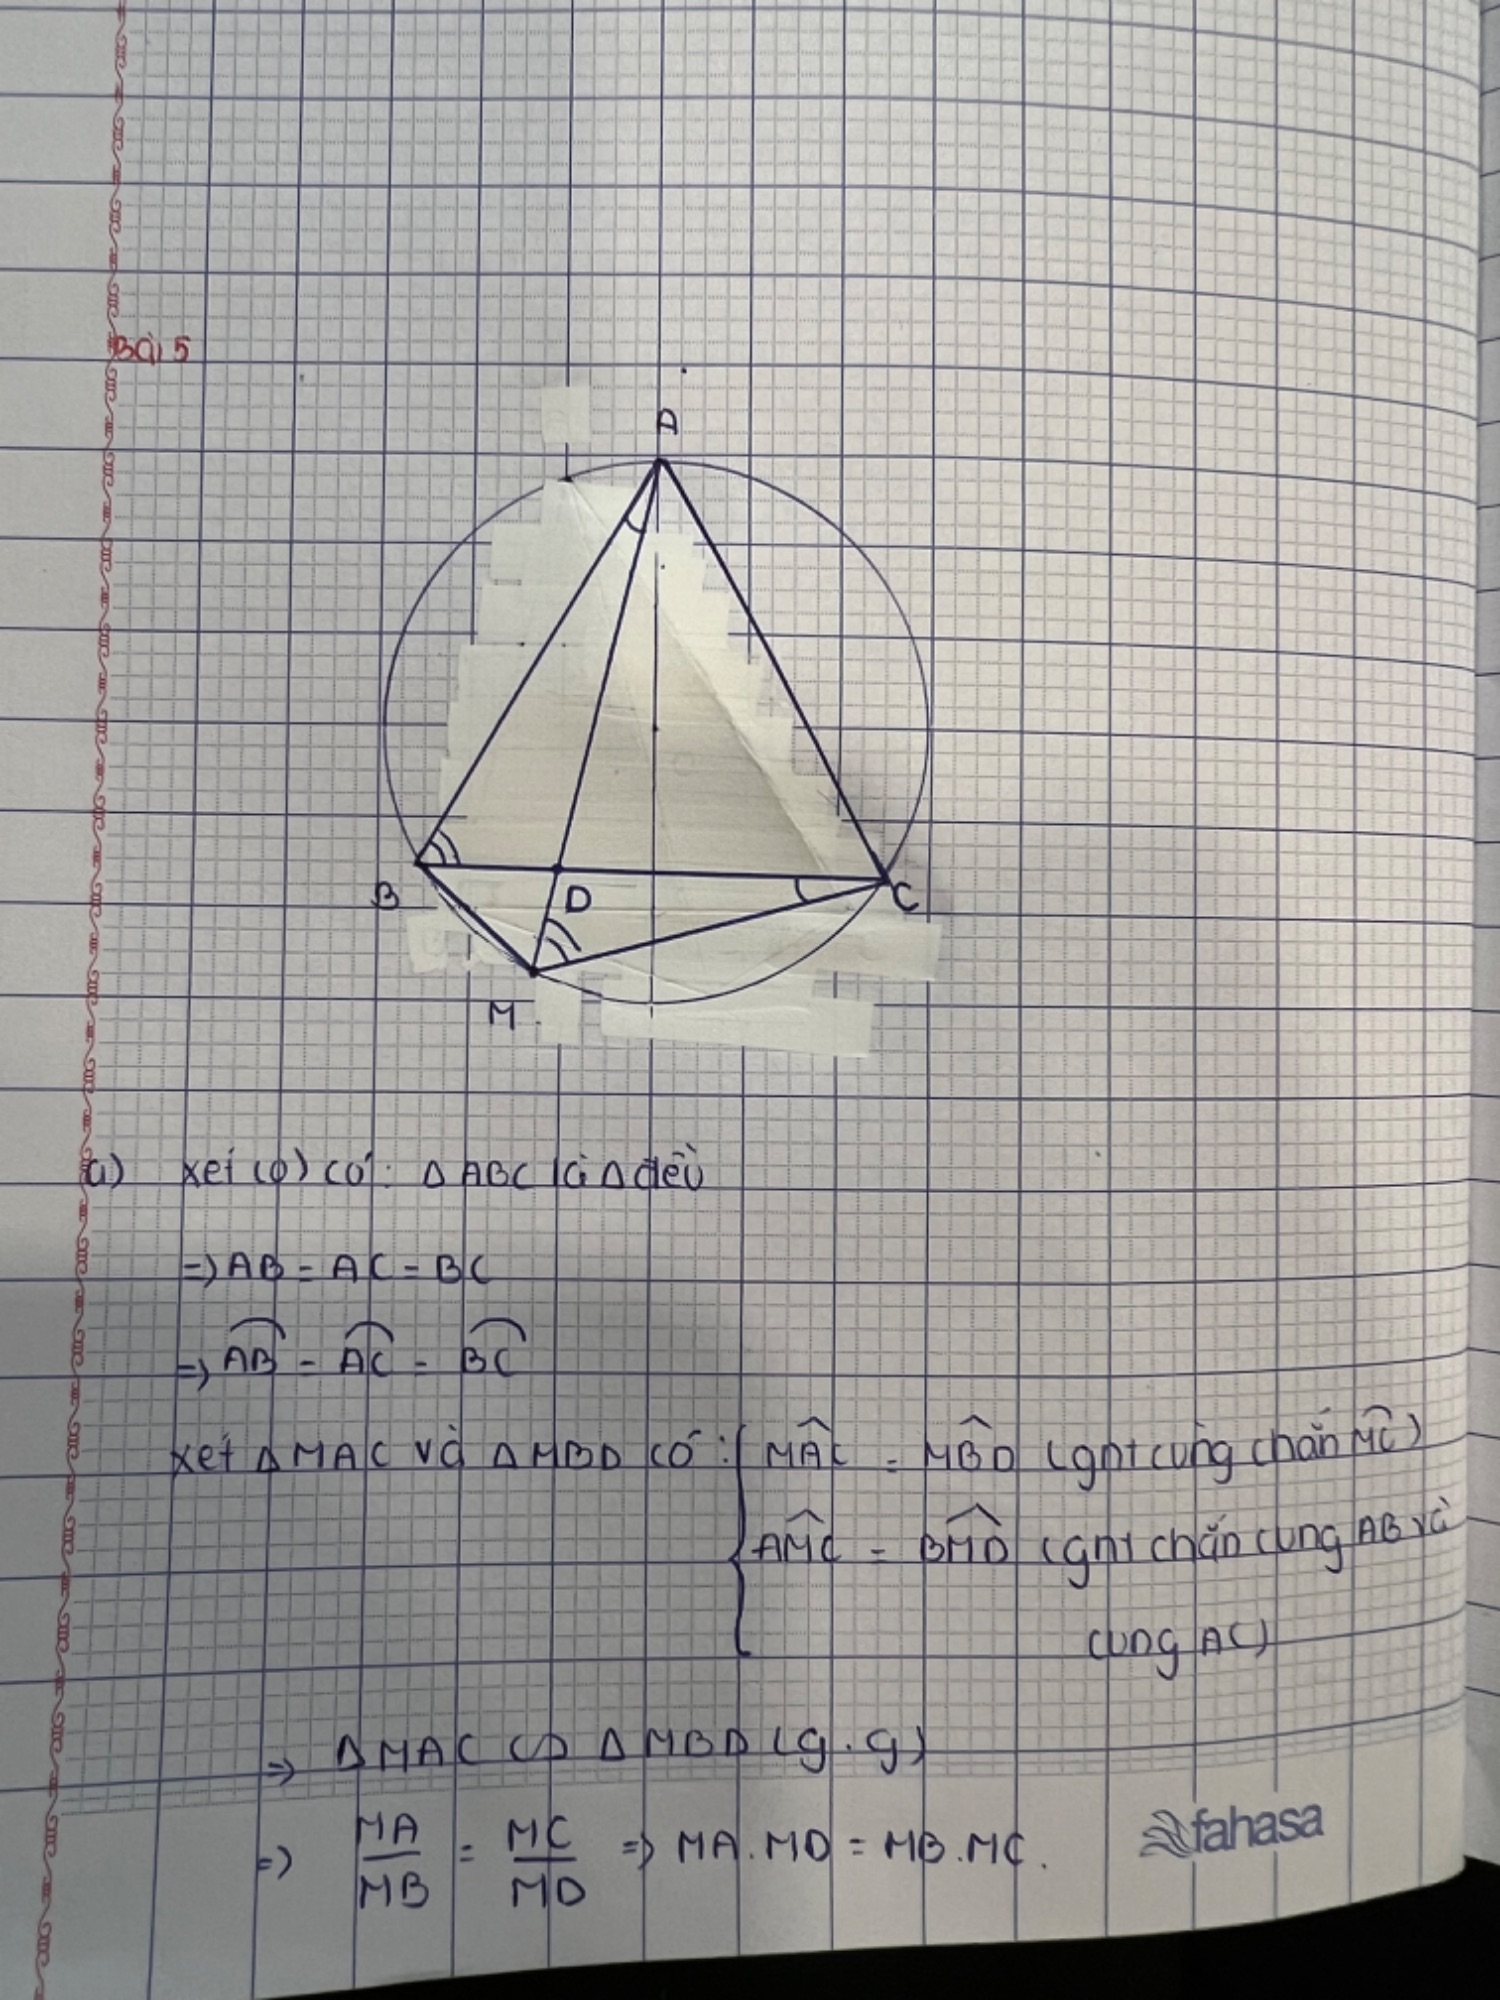 Bài 5
A
B
D
C
M
a) xét (O) có: Δ ABC là Δ đều
=> AB = AC = BC
=> AB = AC = BC
xét Δ MAC và Δ MBD có: { MAC = MBD (gnt cùng chắn MC)
AMC = BMD (gnt chắn cung AB và
cung AC)
=> Δ MAC ∽ Δ MBD (g.g)
=> MA/MB = MC/MD => MA.MD = MB.MC.
fahasa